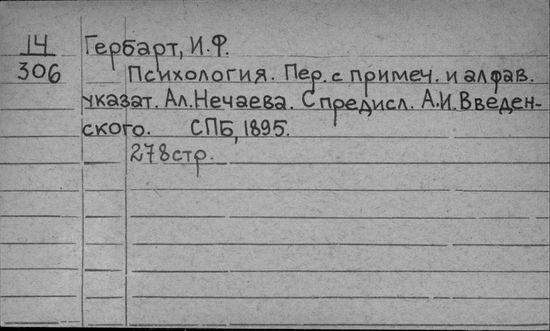 14
306
Гербарт, И.Ф.
Психология. Пер. с примеч. и алфав.
указат. Ал. Нечаева. С предисл. А.И. Введен-
ского. СПБ, 1895.
278 стр.